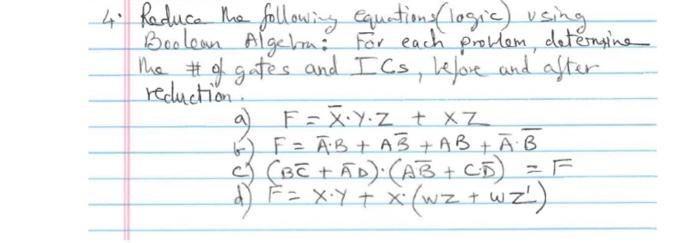 4. Reduce the following equations (logic) using
Boolean Algebra: For each problem, determine
the # of gates and ICs, before and after
reduction.
a) F = X̅·Y·Z + XZ
b) F = A̅·B + AB̅ + AB + A̅·B̅
c) (BC̅ + A̅D)·(AB̅ + CD̅) = F
d) F = X·Y + X·(WZ + WZ')